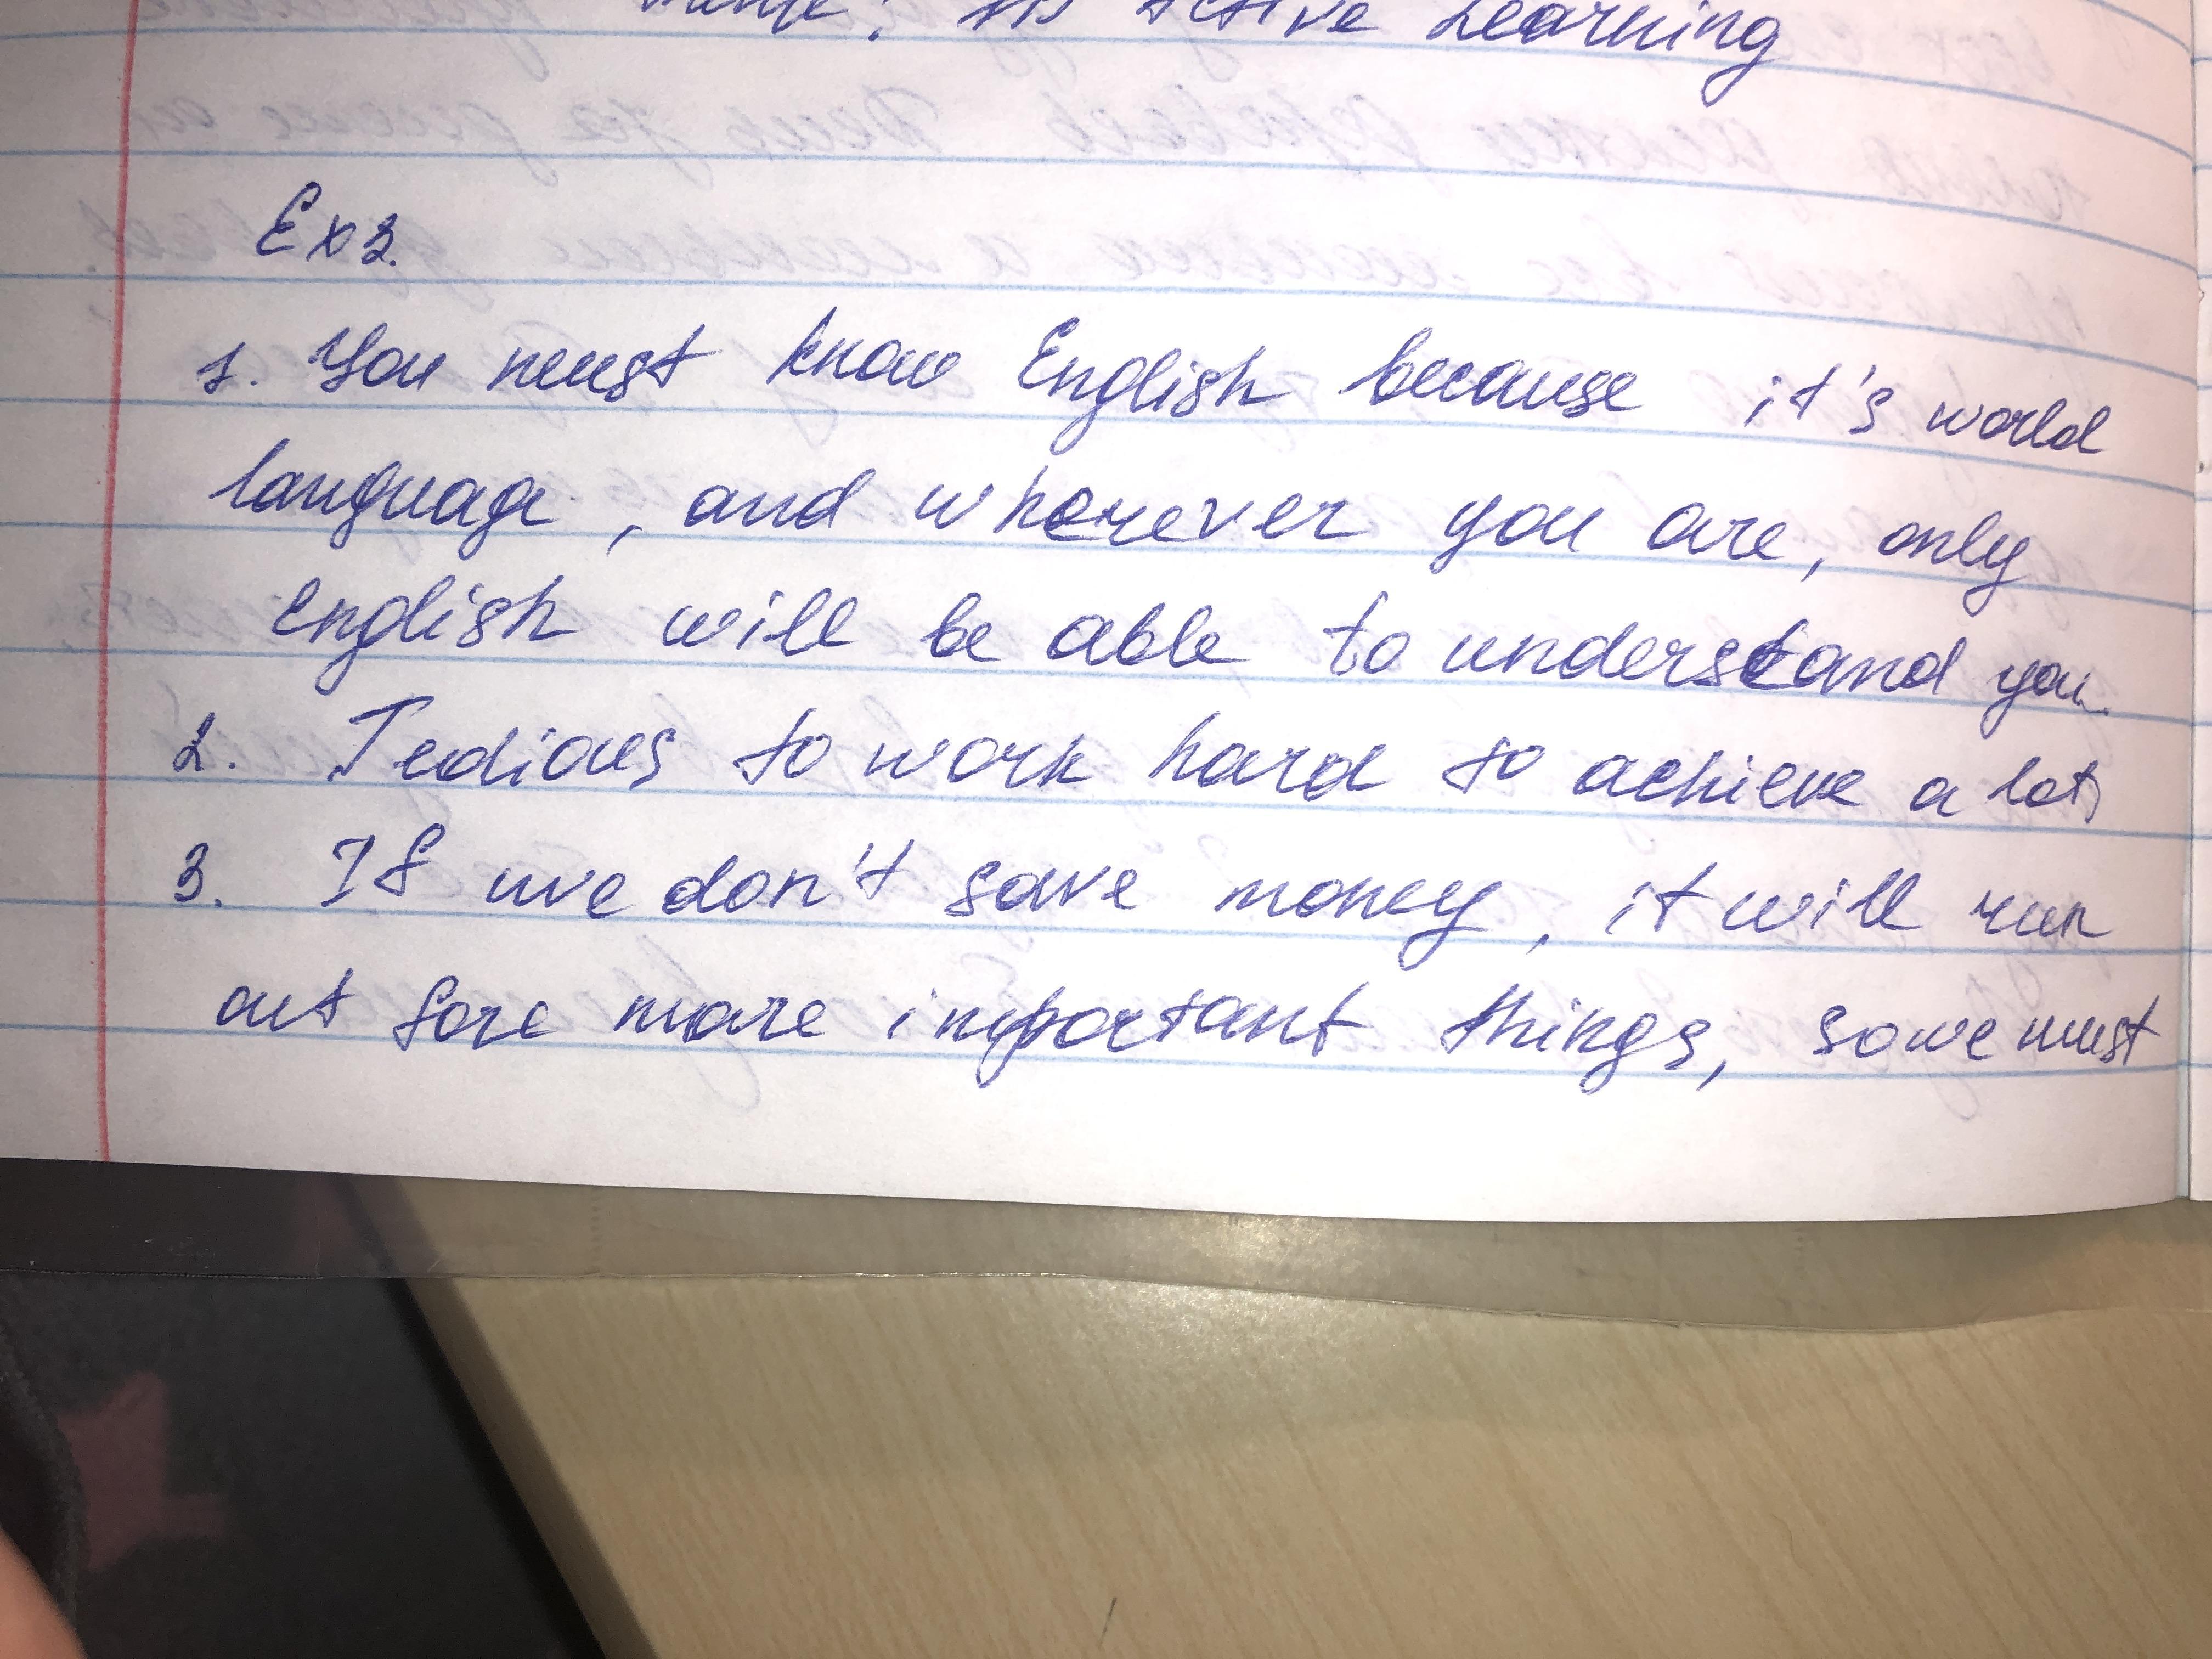 Active Learning
Ex3.
1. You must know English because it's world
language, and wherever you are, only
English will be able to understand you.
2. Tedious to work hard to achieve a lot
3. If we don't save money, it will run
out fore more important things, so we must